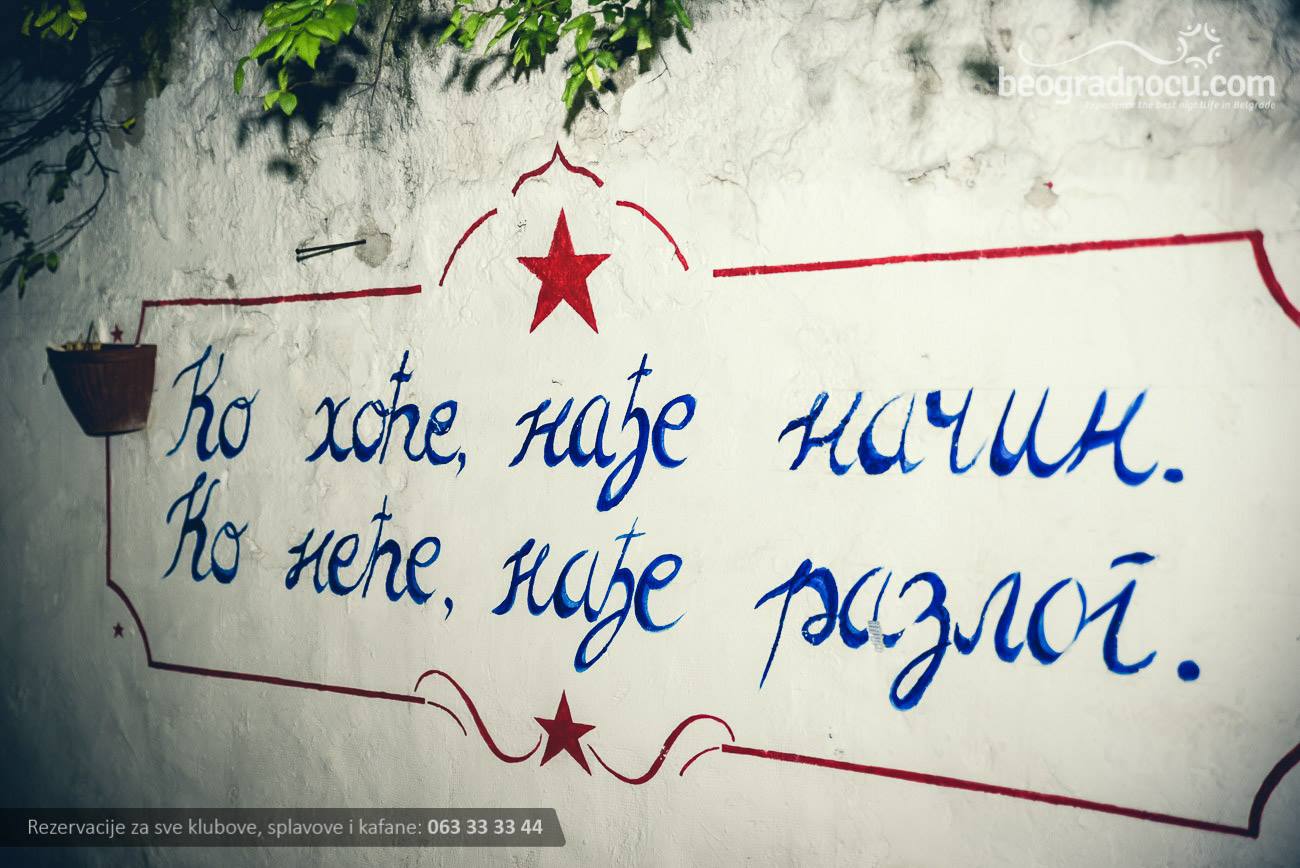 beogradnocu.com
Experience the best nightlife in Belgrade
Ко хоће, нађе начин.
Ко неће, нађе разлог.
Rezervacije za sve klubove, splavove i kafane: 063 33 33 44